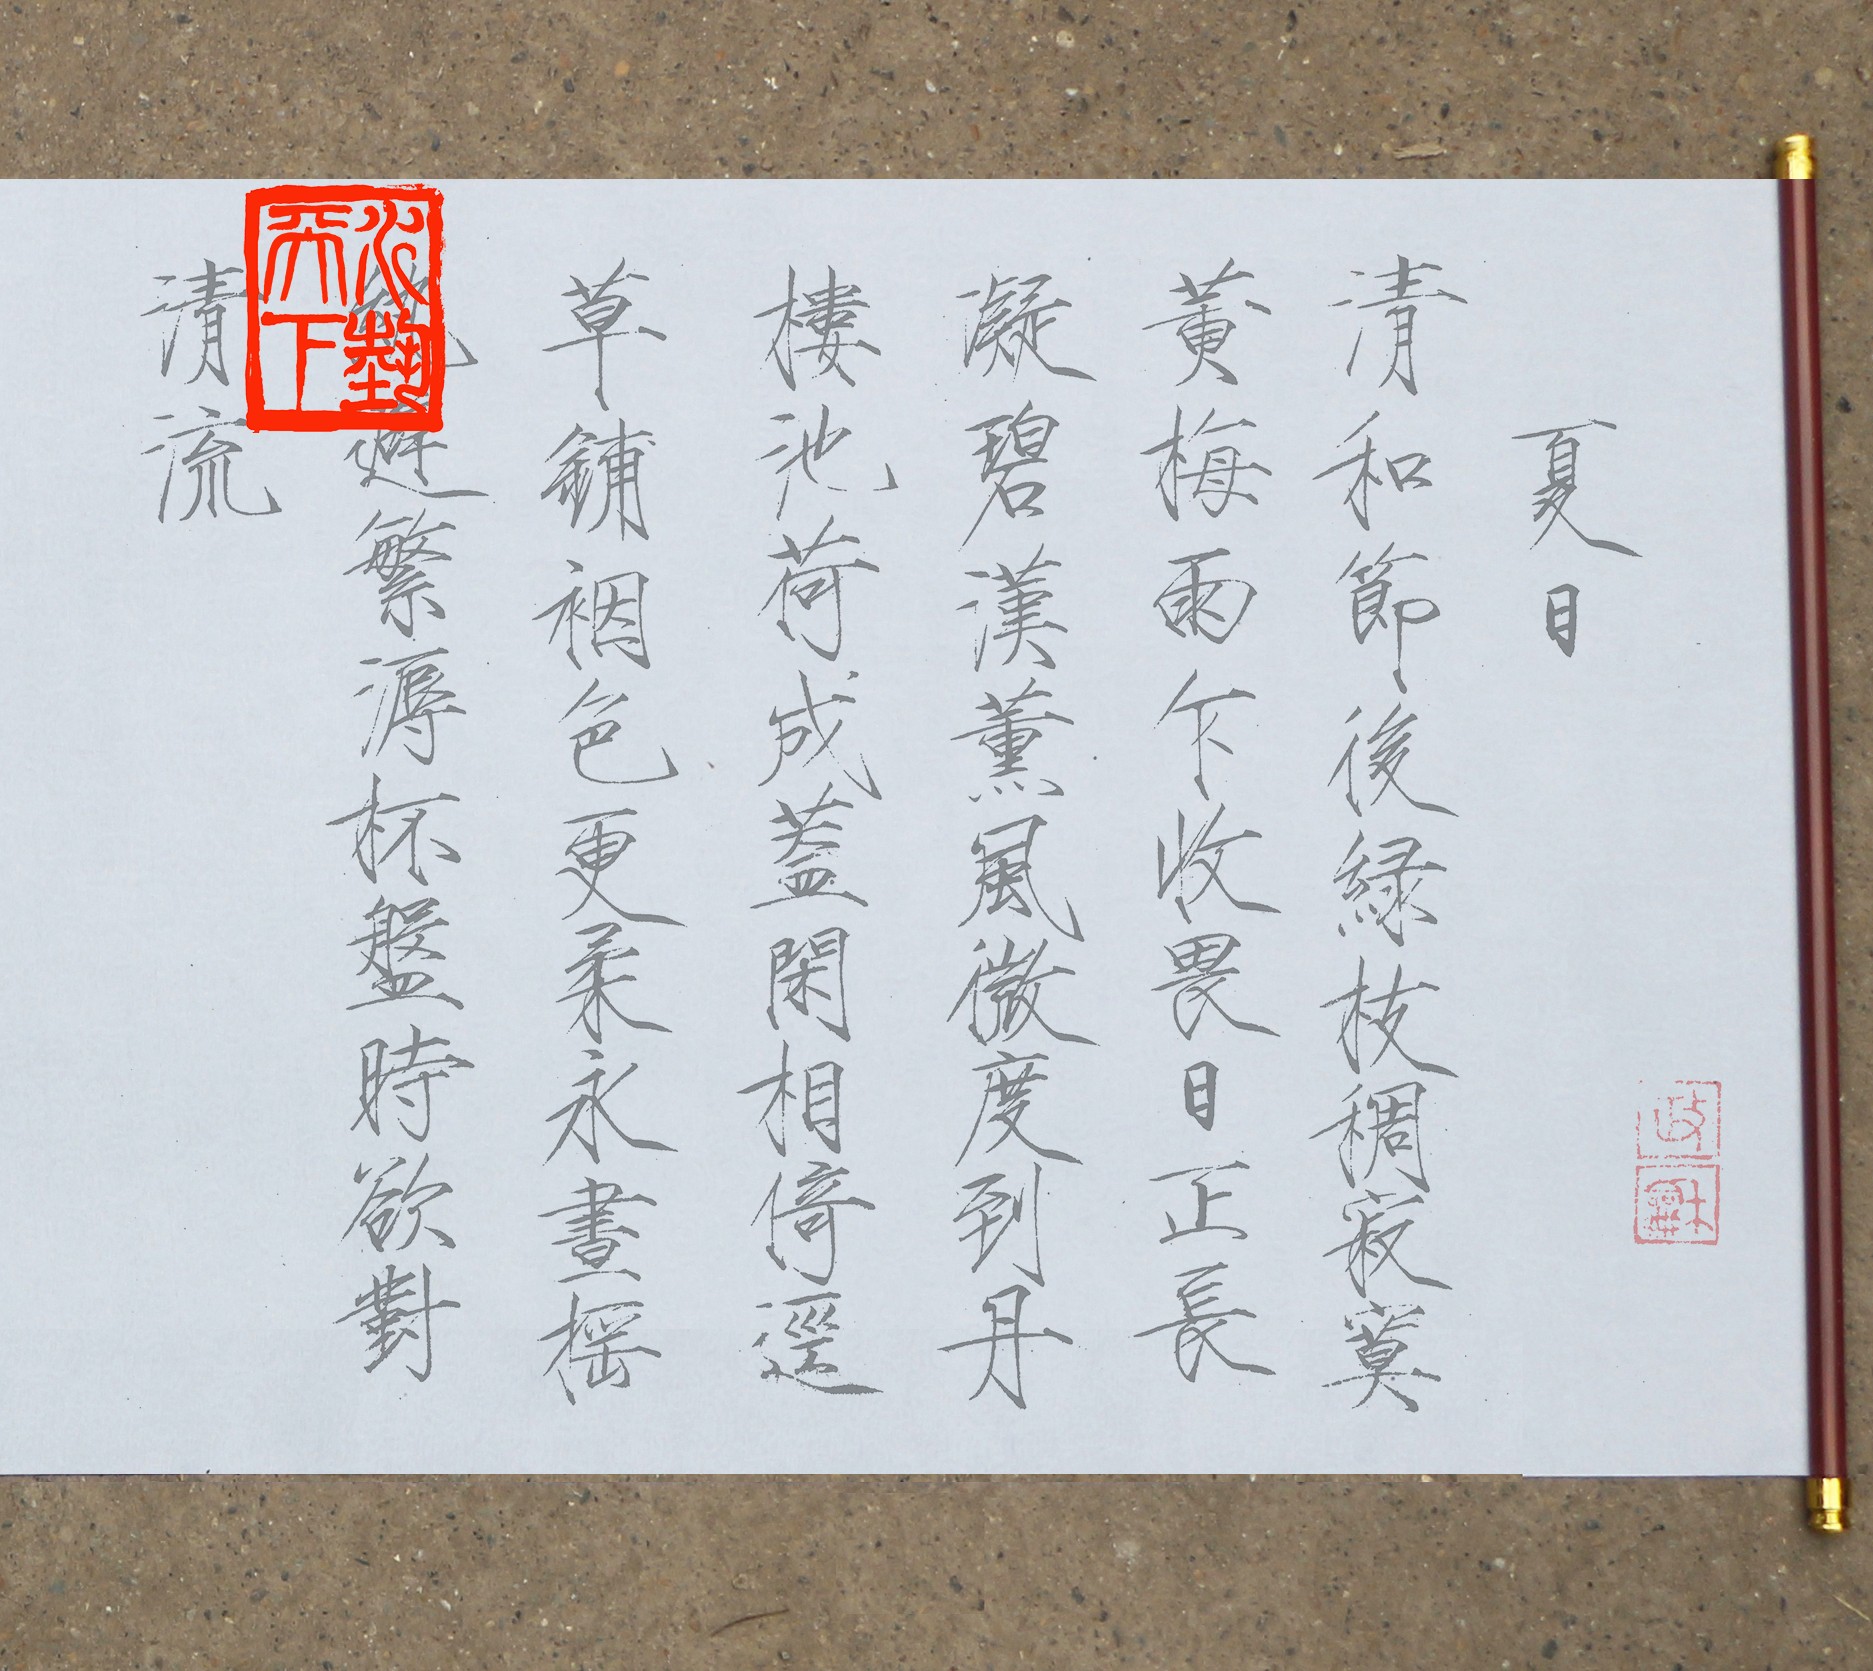 夏日
清和節後緑枝稠寂寞
黄梅雨乍收畏日正長
凝碧漢薰風微度到丹
樓池荷成蓋閑相倚逕
草鋪裀色更柔永晝摇
避繁溽杯盤時欲對
清流
天下